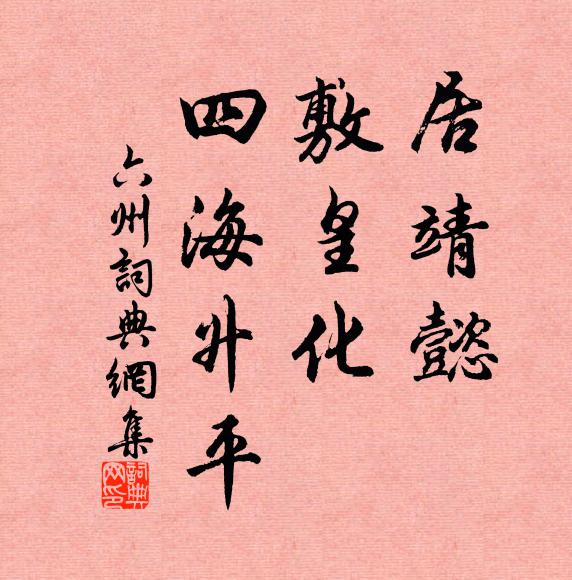 居靖懿
敷皇化
四海升平
六州詞典網集
詞典网印